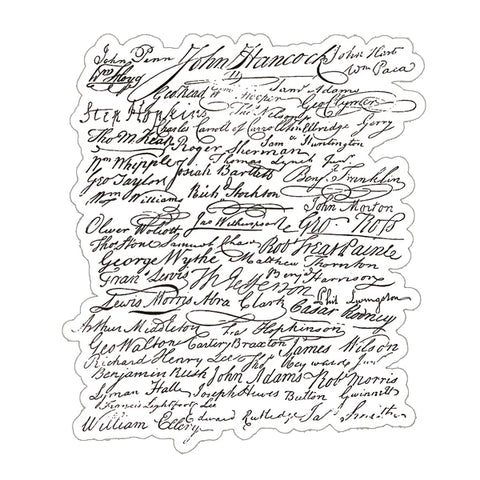 John Penn John Hancock John Hart
Wm Hoop Wm Paca
Geo Read Wm Hooper Saml Adams
Geo Clymer
Step Hopkins Tho Nelson jr
Charles Carroll of Carrollton Elbridge Gerry
Tho M Kean Roger Sherman Sam Huntington
Wm Whipple Thomas Lynch Junr
Geo Taylor Josiah Bartlett Benj Franklin
Wm Williams Richd Stockton
John Morton
Oliver Wolcott Jno Witherspoon Geo Ross
Thos Stone Samuel Chase Robt Treat Paine
George Wythe Matthew Thornton
Fran Lewis Th Jefferson Benj Harrison
Lewis Morris Abra Clark Phil Livingston
Caesar Rodney
Arthur Middleton Fra Hopkinson
Geo Walton Carter Braxton James Wilson
Richard Henry Lee Thos Heyward Junr
Benjamin Rush John Adams Robt Morris
Lyman Hall Joseph Hewes Button Gwinnett
Francis Lightfoot Lee
William Ellery Edward Rutledge Jas Smith